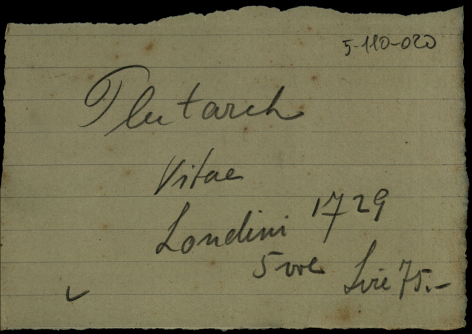 5-110-020
Plutarch
Vitae
Londini 1729
5 voll
Lire 75.-